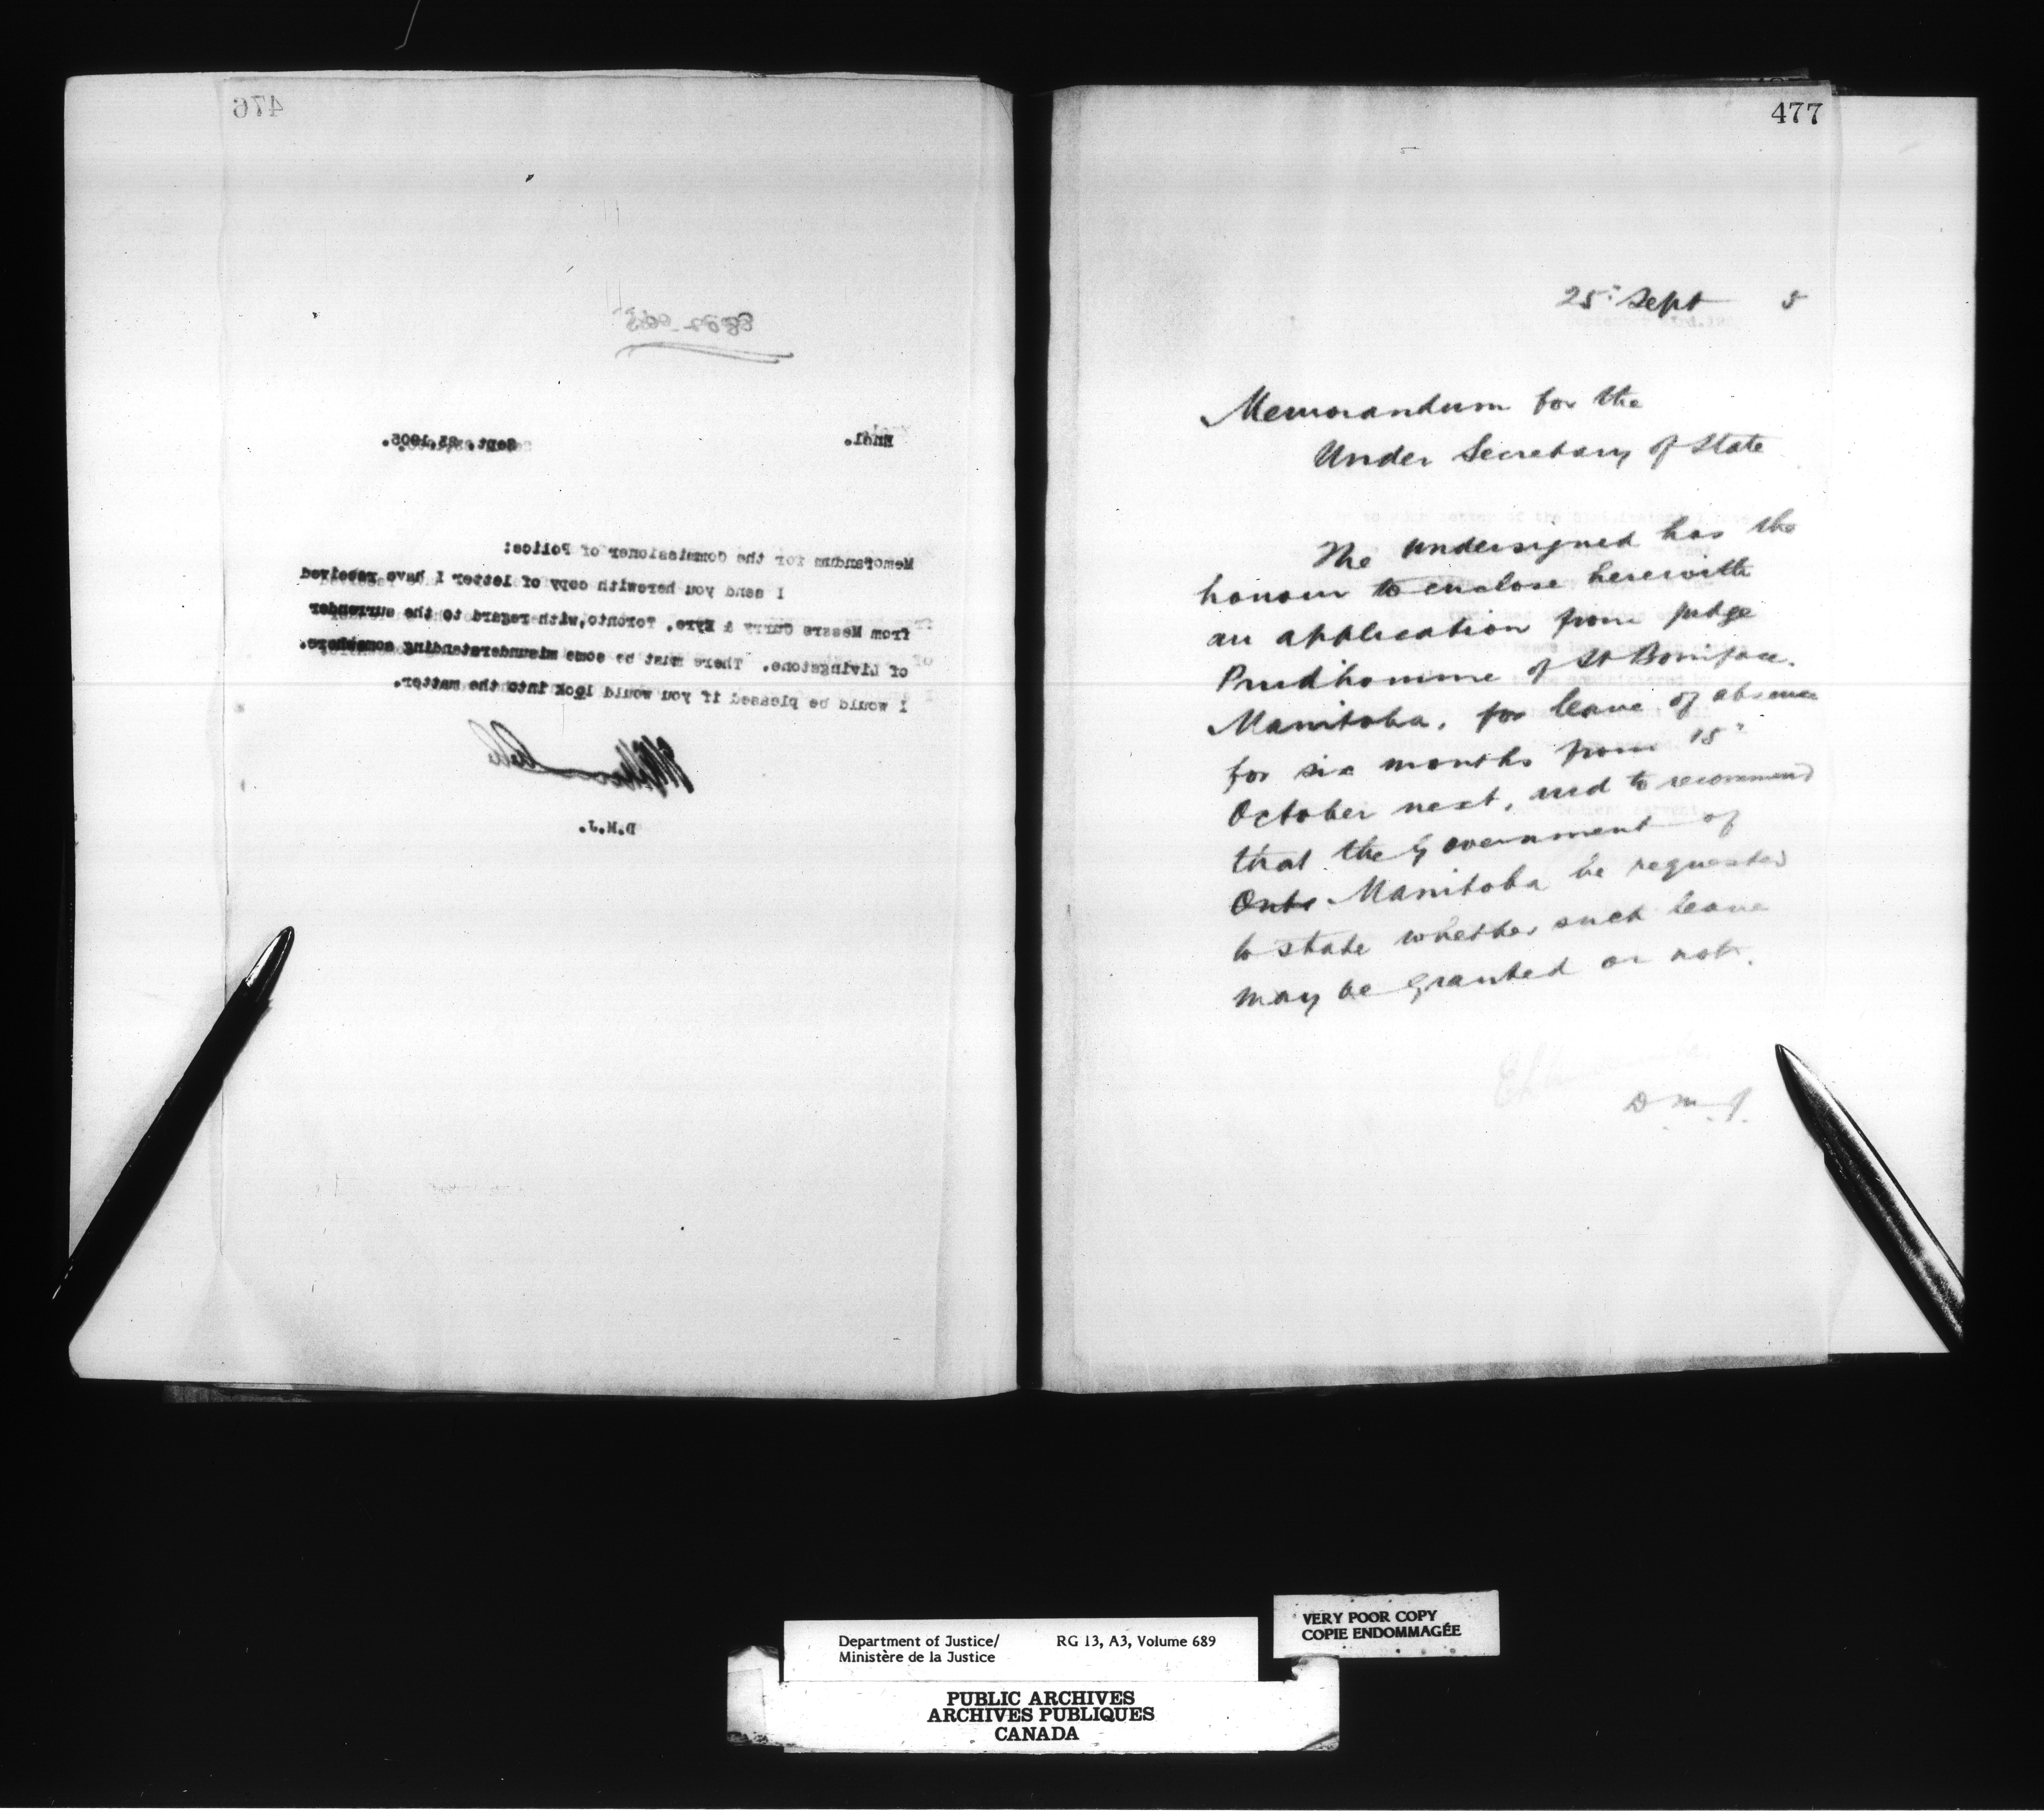 476
Encl.
Sept. 23,1905.
Memorandum for the Commissioner of Police:
I send you herewith copy of letter I have received
from Messrs Curry & Eyre, Toronto, with regard to the surrender
of Livingstone. There must be some misunderstanding somewhere.
I would be pleased if you would look into the matter.
D.M.J.
477
25" Sept 5
Memorandum for the
Under Secretary of State
The undersigned has the
honour to enclose herewith
an application from Judge
Prudhomme of St Boniface.
Manitoba, for leave of absence
for six months from 15"
October next, and to recommend
that the Government of
Onto Manitoba be requested
to state whether such leave
may be granted or not.
D.M.J.
Department of Justice/ RG 13, A3, Volume 689
Ministère de la Justice
VERY POOR COPY
COPIE ENDOMMAGÉE
PUBLIC ARCHIVES
ARCHIVES PUBLIQUES
CANADA